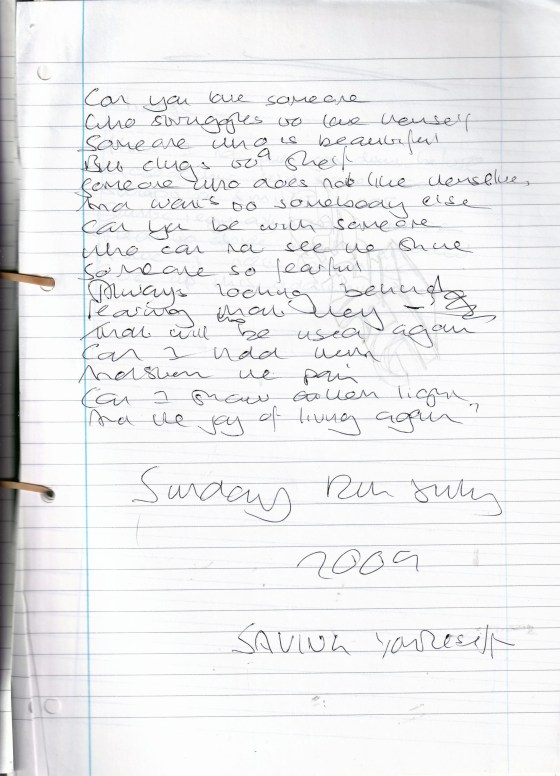 Can you love someone
Who struggles to love herself
Someone who is beautiful
But clings to a shelf
Someone who does not like themselves
And wants to somebody else
Can you be with someone
Who can not see the shine
Someone so fearful
Always looking behind
fearing that they
that will be used again
Can I hold them
the pain
Can I show them light
And the joy of living again?
Sunday 12th July
2009
SAVING YOURSELF